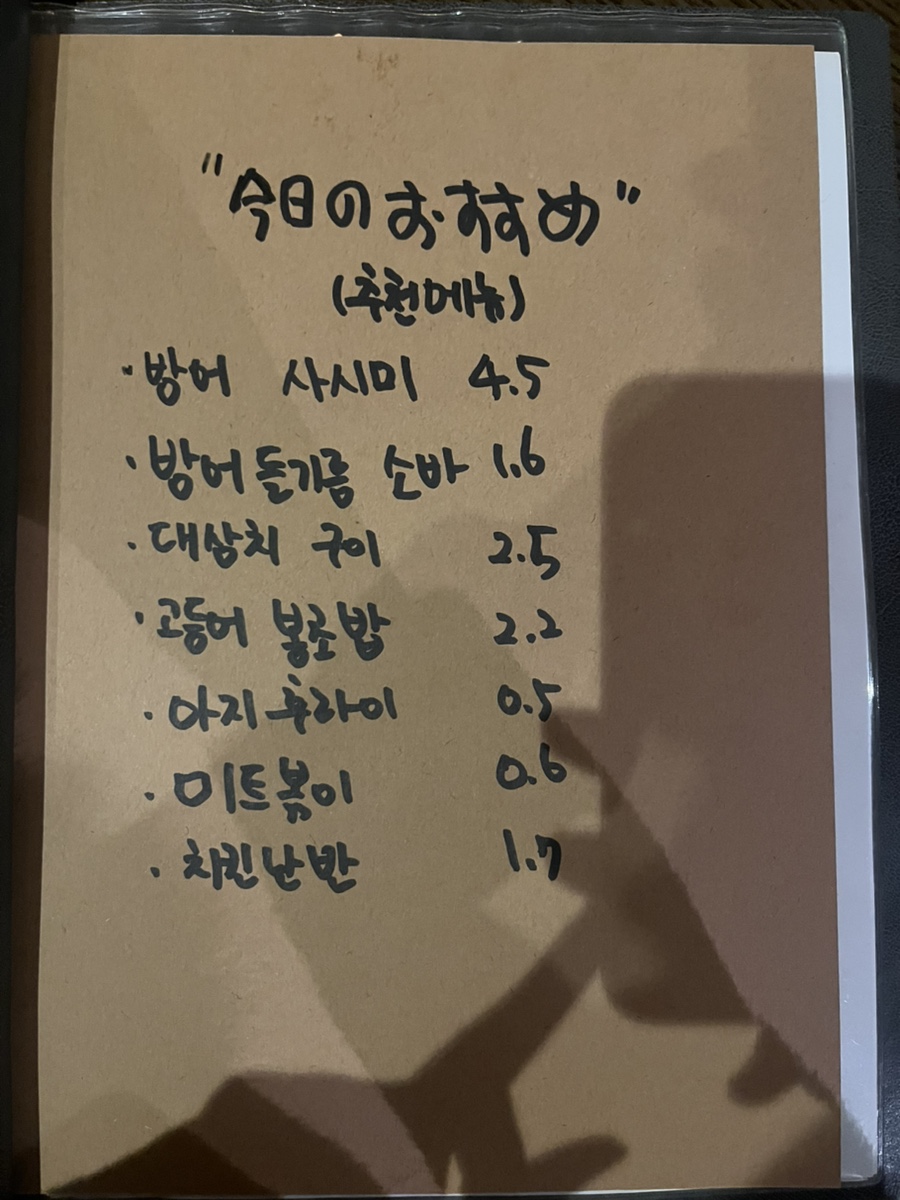 "今日のおすすめ"
(추천메뉴)
· 방어 사시미 4.5
· 방어들기름 소바 1.6
· 대삼치 구이 2.5
· 고등어 봉초밥 2.2
· 아지 후라이 0.5
· 미트볶이 0.6
· 치킨난반 1.7